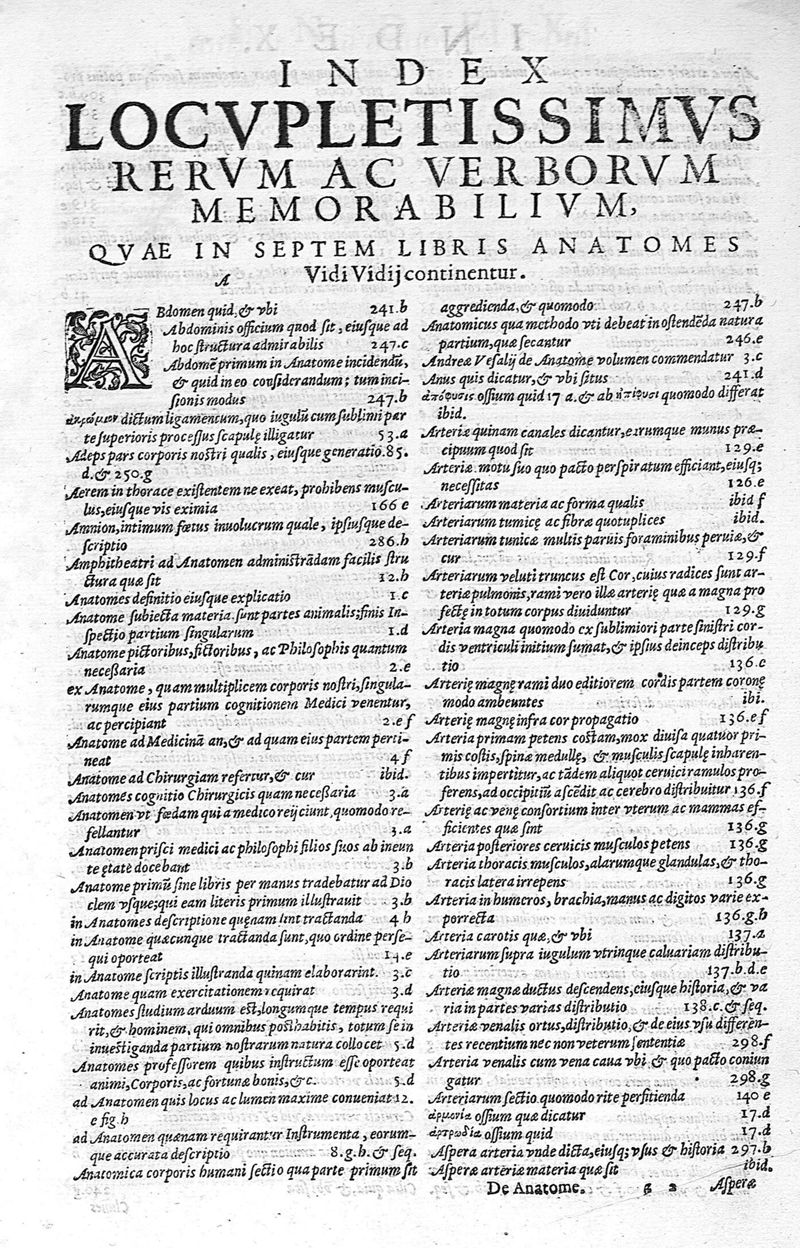 INDEX
LOCVPLETISSIMVS
RERVM AC VERBORVM
MEMORABILIVM,
QVAE IN SEPTEM LIBRIS ANATOMES
Vidi Vidij continentur.
A
ABdomen quid, & vbi 241.b
Abdominis officium quod sit, eiusque ad
hoc structura admirabilis 247.c
Abdomē primum in Anatome incidendū,
& quid in eo considerandum; tum inci-
sionis modus 247.b
ἀκρώμιον dictum ligamentum, quo iugulū cum sublimi par
te superioris processus scapulę illigatur 53.a
Adeps pars corporis nostri qualis, eiusque generatio. 85.
d. & 250.g
Aerem in thorace existentem ne exeat, prohibens muscu-
lus, eiusque vis eximia 166 e
Amnion, intimum fœtus inuolucrum quale, ipsiusque de-
scriptio 286.b
Amphitheatri ad Anatomen administrādam facilis stru
ctura quæ sit 12.b
Anatomes definitio eiusque explicatio 1.c
Anatome subiecta materia sunt partes animalis; finis In-
spectio partium singularum 1.d
Anatome pictoribus, fictoribus, ac Philosophis quantum
necessaria 2.e
ex Anatome, quam multiplicem corporis nostri, singula-
rumque eius partium cognitionem Medici venentur,
ac percipiant 2.e f
Anatome ad Medicinā an, & ad quam eius partem perti-
neat 4 f
Anatome ad Chirurgiam refertur, & cur ibid.
Anatomes cognitio Chirurgicis quam necessaria 3.a
Anatomen vt fœdam qui a medico reijciunt, quomodo re-
fellantur 3.a
Anatomen prisci medici ac philosophi filios suos ab ineun
te ętatē docebant 3.b
Anatome primū sine libris per manus tradebatur ad Dio
clem vsque; qui eam literis primum illustrauit 3.b
in Anatomes descriptione quęnam sint tractanda 4 h
in Anatome quæcunque tractanda sunt, quo ordine perse-
qui oporteat 14.e
in Anatome scriptis illustranda quinam elaborarint. 3.c
Anatome quam exercitationem requirat 3.d
Anatomes studium arduum est, longumque tempus requi
rit, & hominem, qui omnibus posthabitis, totum se in
inuestiganda partium nostrarum natura collocet 5.d
Anatomes professorem quibus instructum esse oporteat
animi, Corporis, ac fortunæ bonis, &c. 5.d
ad Anatomen quis locus ac lumen maxime conueniat 12.
e fig.h
ad Anatomen quænam requirantur Instrumenta, eorum-
que accurata descriptio 8.g.h. & seq.
Anatomica corporis humani sectio qua parte primum sit
aggredienda, & quomodo 247.b
Anatomicus qua methodo vti debeat in ostendēda natura
partium, quæ secantur 246.e
Andreæ Vesalij de Anatome volumen commendatur 3.c
Anus quis dicatur, & vbi situs 241.d
ἀπόφυσις ossium quid 17 a. & ab ἐπίφυσι quomodo differat
ibid.
Arteriæ quinam canales dicantur, earumque munus præ-
cipuum quod sit 129.e
Arteriæ motu suo quo pacto perspiratum efficiant, eiusq;
necessitas 126.e
Arteriarum materia ac forma qualis ibid f
Arteriarum tunicę ac fibræ quotuplices ibid.
Arteriarum tunicæ multis paruis foraminibus peruiæ, &
cur 129.f
Arteriarum veluti truncus est Cor, cuius radices sunt ar-
teriæ pulmonis, rami vero illæ arterię quæ a magna pro
fectę in totum corpus diuiduntur 129.g
Arteria magna quomodo ex sublimiori parte sinistri cor-
dis ventriculi initium sumat, & ipsius deinceps distribu
tio 136.e
Arterię magnę rami duo editiorem cordis partem coronę
modo ambeuntes ibi.
Arterię magnę infra cor propagatio 136.e f
Arteria primam petens costam, mox diuisa quatuor pri-
mis costis, spinæ medullę, & musculis scapulę inhæren-
tibus impertitur, ac tādem aliquot ceruici ramulos pro-
ferens, ad occipitiū ascēdit ac cerebro distribuitur 136.f
Arterię ac venę consortium inter vterum ac mammas ef-
ficientes quæ sint 136.g
Arteria posteriores ceruicis musculos petens 136.g
Arteria thoracis musculos, alarumque glandulas, & tho-
racis latera irrepens 136.g
Arteria in humeros, brachia, manus ac digitos varie ex-
porrecta 136.g.h
Arteria carotis quæ, & vbi 137.a
Arteriarum supra iugulum vtrinque caluariam distribu-
tio 137.b.d.e
Arteriæ magnæ ductus descendens, eiusque historia, & va
ria in partes varias distributio 138.c. & seq.
Arteriæ venalis ortus, distributio, & de eius vsu differen-
tes recentium nec non veterum sententiæ 298.f
Arteria venalis cum vena caua vbi & quo pacto coniun
gatur 298.g
Arteriarum sectio quomodo rite perfitienda 140 e
ἁρμονία ossium quæ dicatur 17.d
ἀρτρωδία ossium quid 17.d
Aspera arteria vnde dicta, eiusq; vsus & historia 297.b
Asperæ arteriæ materia quæ sit ibid.
De Anatome. g 2 Asperæ